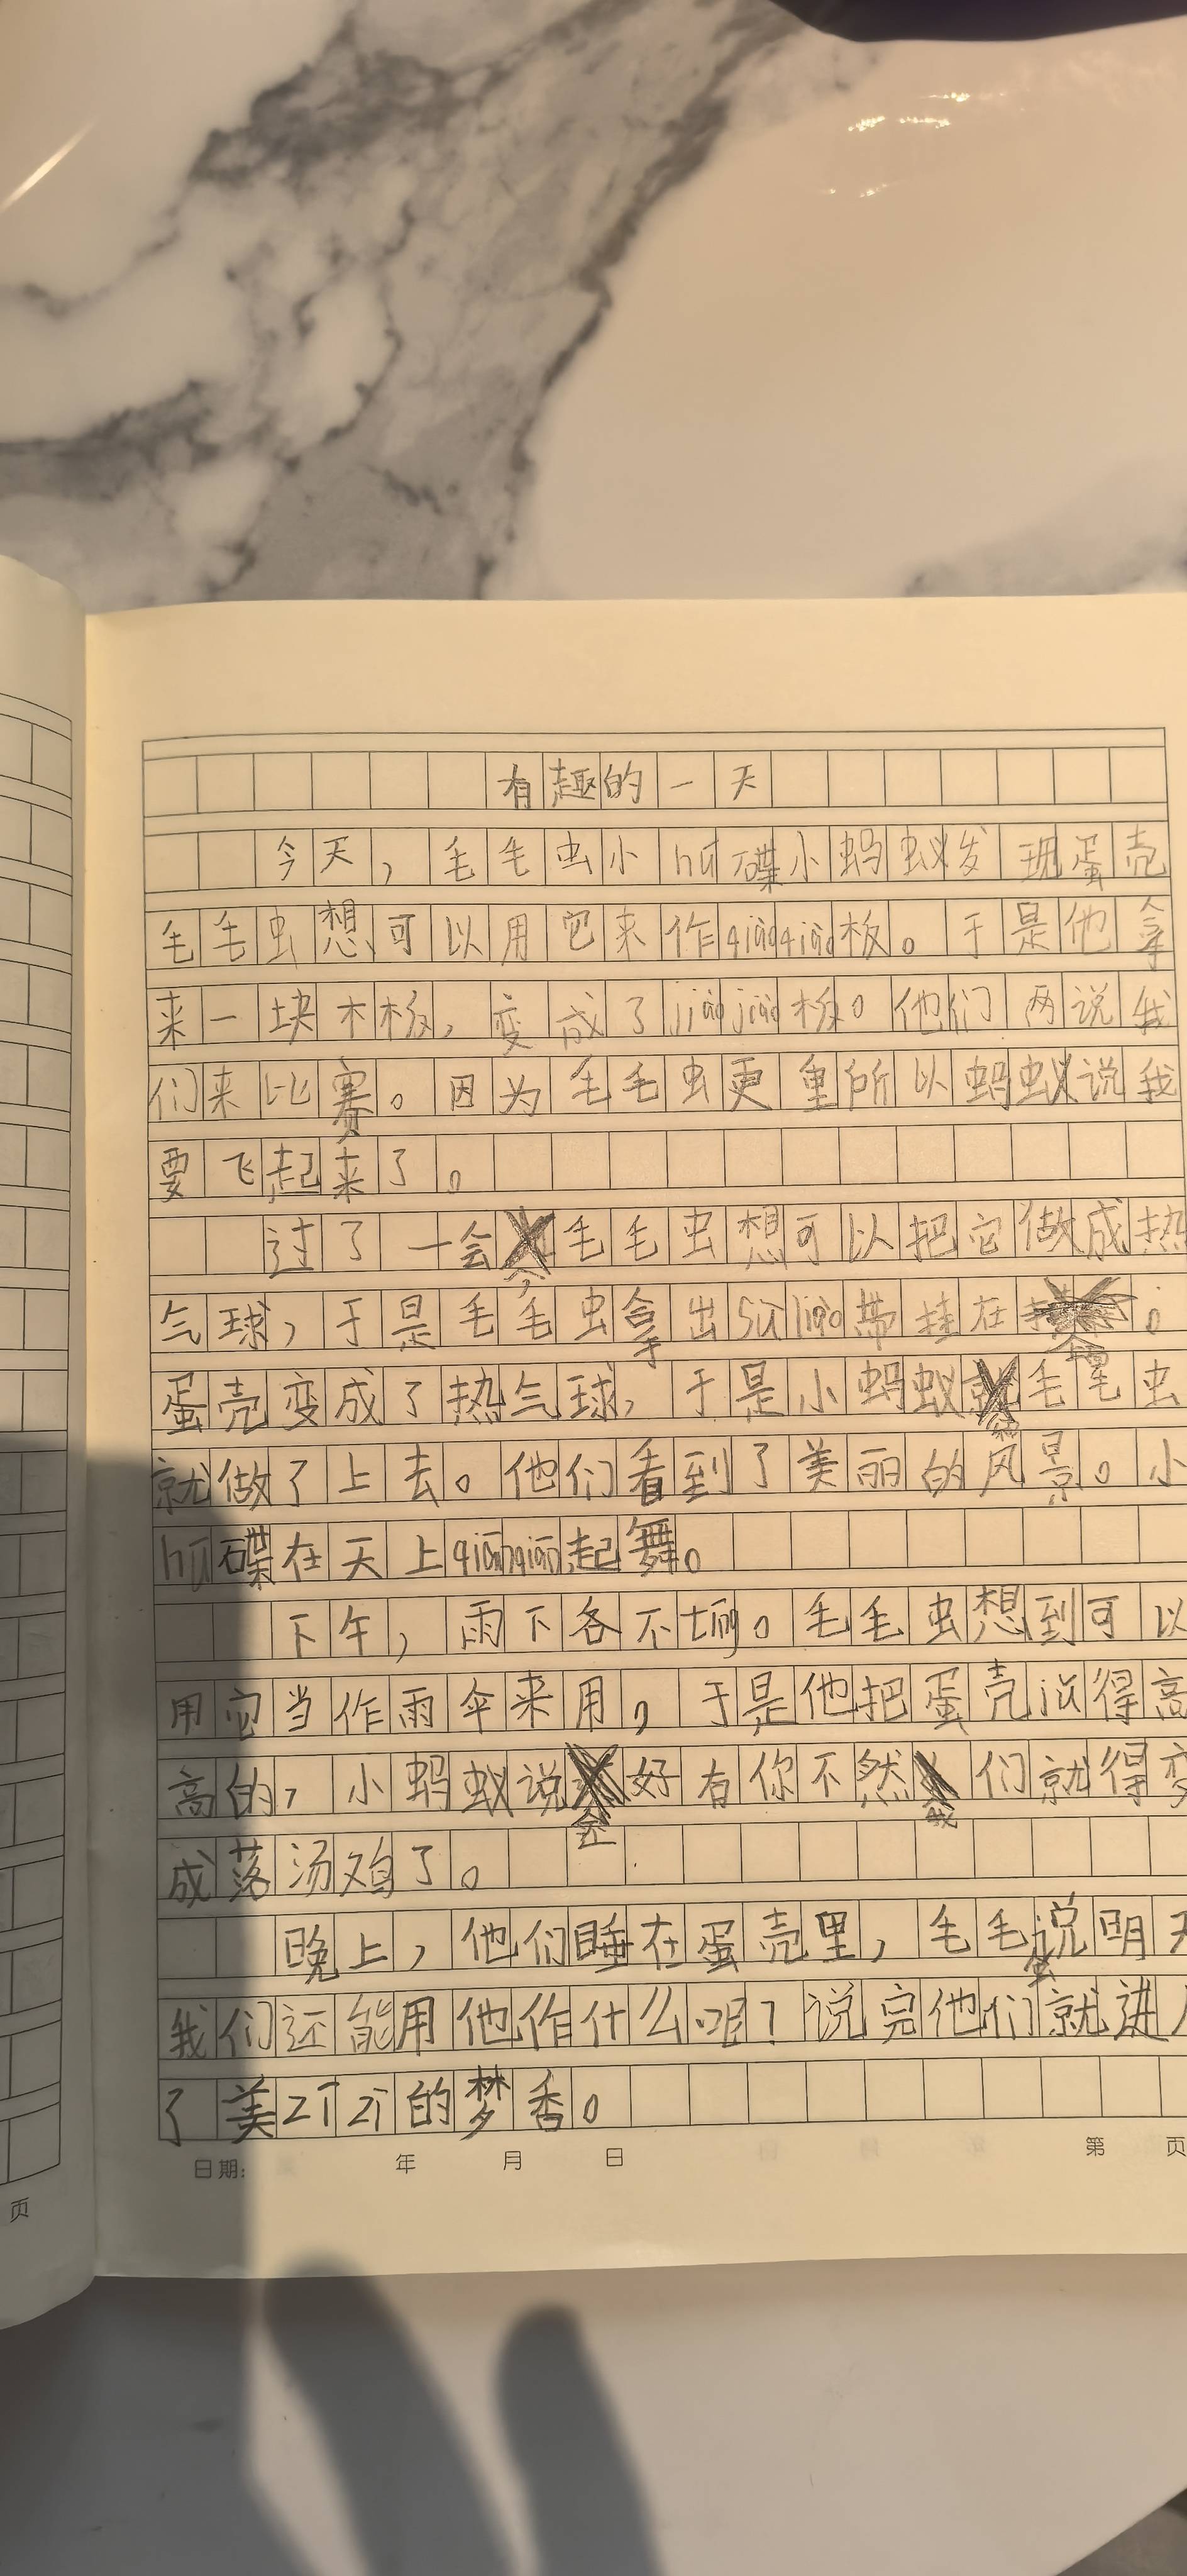 有趣的一天
今天，毛毛虫小hú碟小蚂蚁发现蛋壳
毛毛虫想可以用它来作qiāoqiāo板。于是他拿
来一块木板，变成了jiāojiāo板。他们两说我
们来比赛。因为毛毛虫更重所以蚂蚁说我
要飞起来了。
过了一会，毛毛虫想可以把它做成热
气球，于是毛毛虫拿出sùliào带挂在。
蛋壳变成了热气球，于是小蚂蚁和毛毛虫
就做了上去。他们看到了美丽的风景。小
hú碟在天上qiānqiān起舞。
下午，雨下各不tíng。毛毛虫想到可以
用它当作雨伞来用，于是他把蛋壳jǔ得高
高的，小蚂蚁说还好有你不然我们就得变
成落汤鸡了。
晚上，他们睡在蛋壳里，毛毛虫说明天
我们还能用他作什么呢？说完他们就进入
了美zīzī的梦香。
日期： 年 月 日 第 页
页